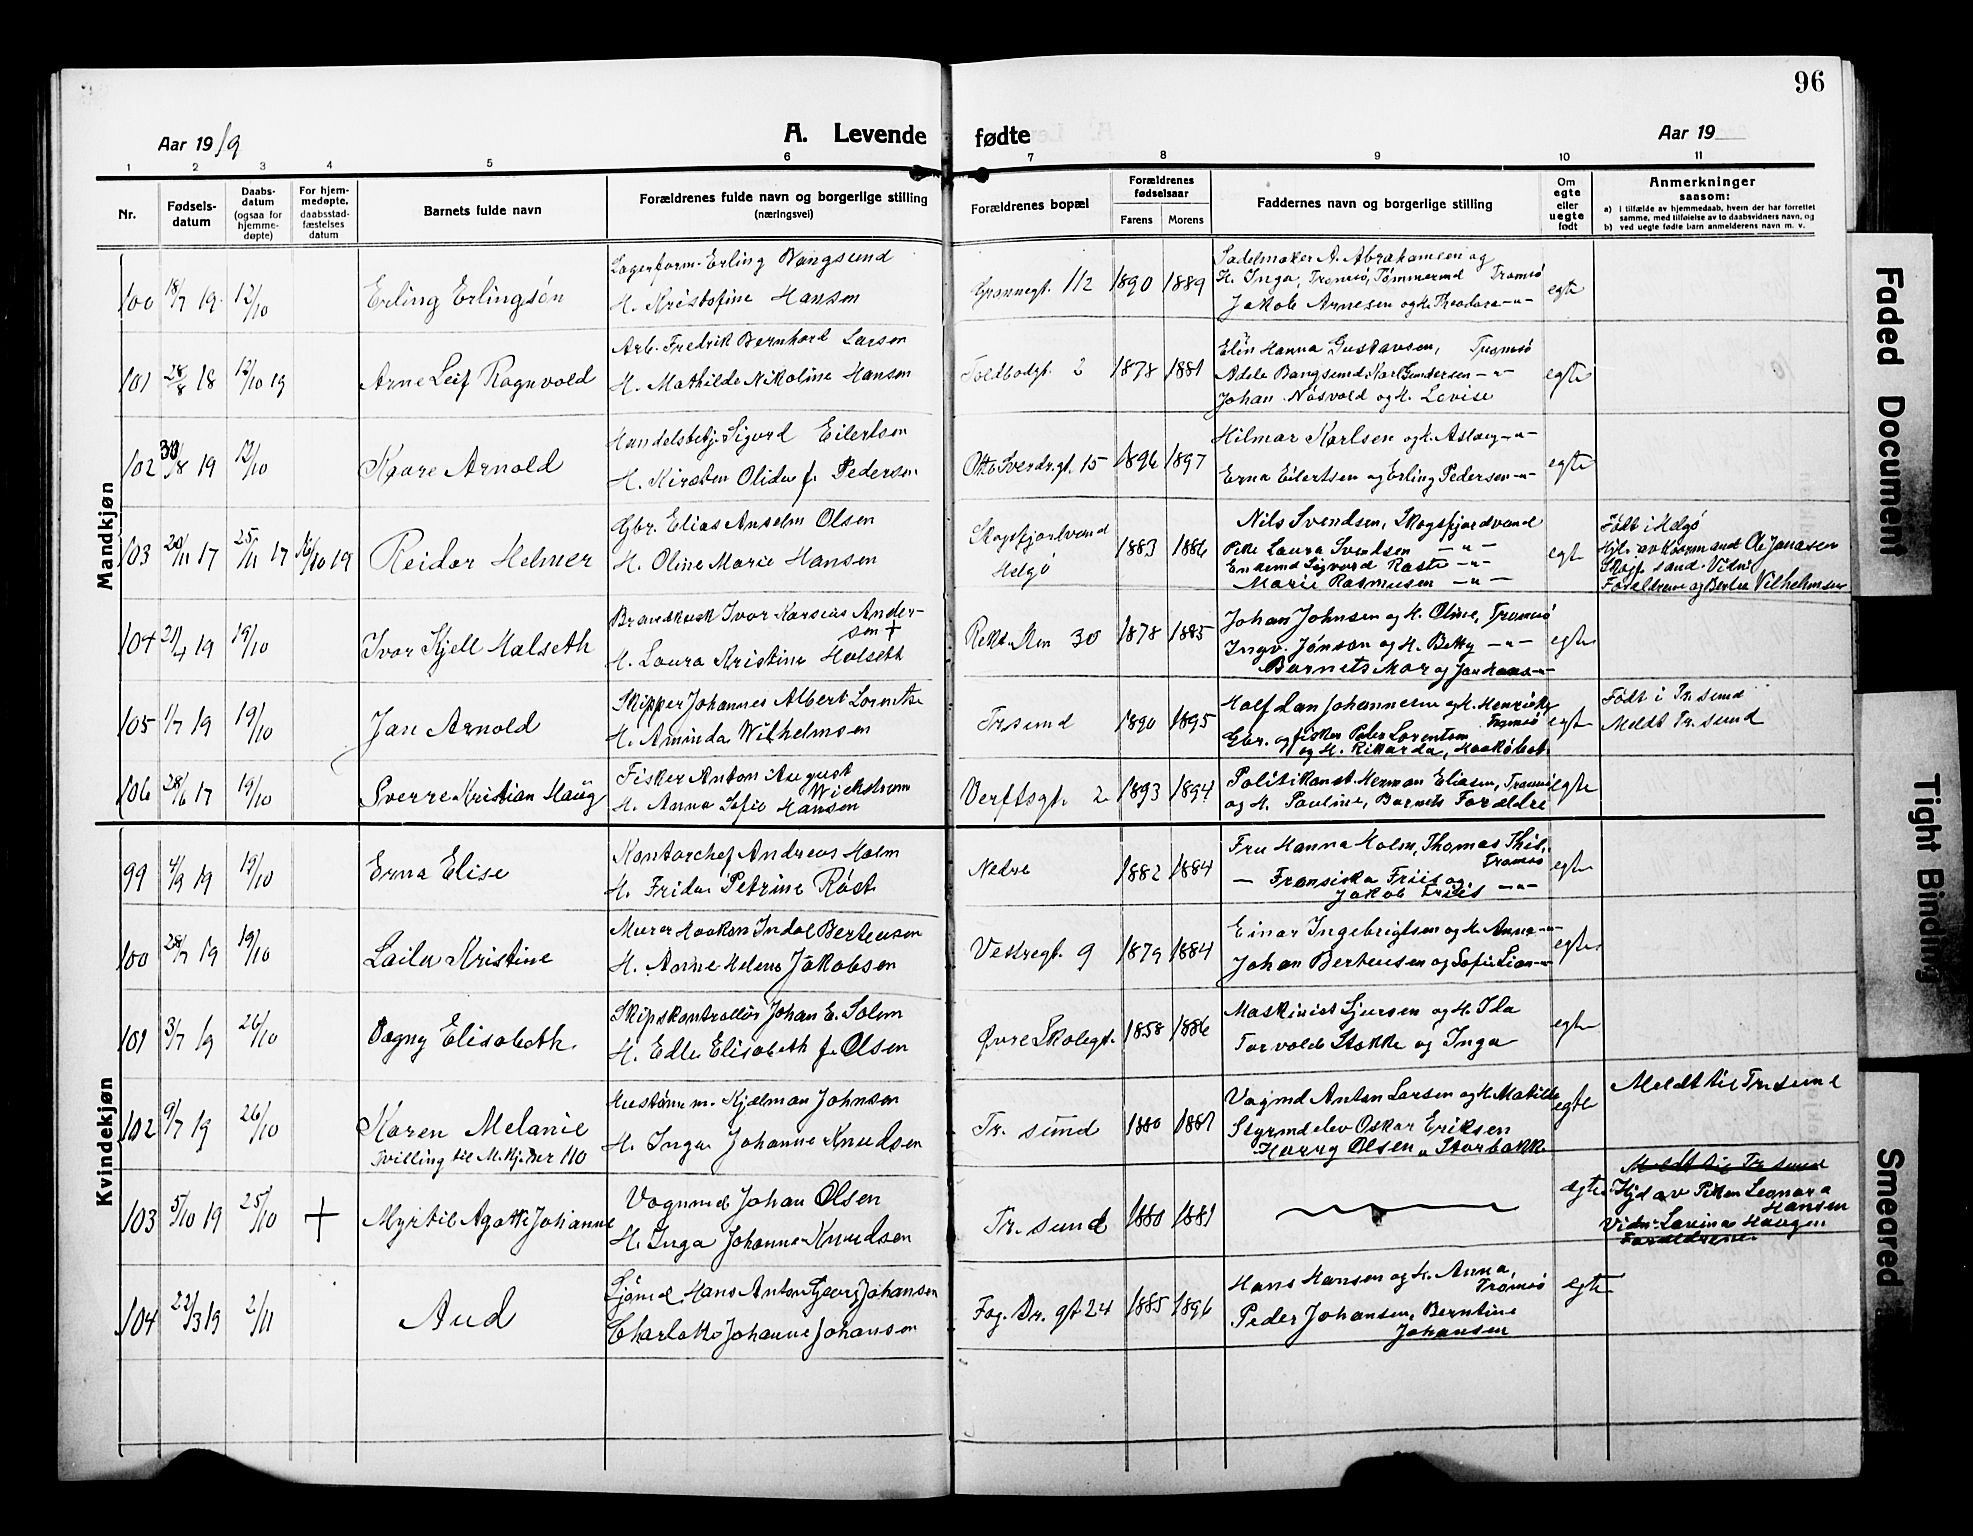 96
Aar 1919
A. Levende fødte
Aar 19
1 2 3 4 5 6 7 8 9 10 11
Nr.
Fødsels-
datum
Daabs-
datum
(ogsaa for
hjemme-
døpte)
For hjem-
medøpte,
daabsstad-
fæstelses
datum
Barnets fulde navn
Forældrenes fulde navn og borgerlige stilling
(næringsvei)
Forældrenes bopæl
Forældrenes
fødselsaar
Farens Morens
Faddernes navn og borgerlige stilling
Om
egte
eller
uegte
født
Anmerkninger
saasom:
a) i tilfælde av hjemmedaab, hvem der har forrettet
samme, med tilføielse av to daabsvidners navn, og
b) ved uegte født barn anmelderens navn m. v.
Mandkjøn
100 18/7 19 12/10
Erling Erlingsøn
Lagerform. Erling Wangsund
H. Kristofine Hansen
Grønnegt. 112 1890 1889
Sadelmaker A. Abrahamsen og
H. Inga, Tromsø, Tømmermd Tromsø
Jakob Arnesen og H. Theodora -"-
egte
101 28/8 18 12/10 19
Arne Leif Ragnvald
Arb. Fredrik Bernhard Larsen
H. Mathilde Nikoline Hansen
Toldbodgt. 2 1878 1881
Elen Hanna Gustavsen, Tromsø
Adele Bangsund Karl Gundersen -"-
Johan Nøsvold og H. Lovise
egte
102 30/8 19 12/10
Kaare Arnold
Handelsbetj. Sigurd Eilertsen
H. Kirsten Olidie f. Pedersen
Otto Sverdr.gt. 15 1896 1897
Hilmar Karlsen og H. Aslaug -"-
Erna Eilertsen og Erling Pedersen -"-
egte
103 20/11 17 25/11 17 16/10 19
Reidar Helmer
Gbr. Elias Anselm Olsen
H. Oline Marie Hansen
Skogsfjordvand
Helgø
1883 1886
Nils Svendsen, Skogsfjordvand
Pike Laura Svendsen -"-
Enkemd Sigvard Raste -"-
Marie Rasmusen -"-
egte
Født i Helgø
Hjd. av Kaarmandt Ole Jonasen
Skogf. sand. Vidn:
Foreldrene og Berte Vilhelmsen
104 21/4 19 19/10
Ivar Kjell Malseth
Brandkusk Ivar Karsius Ander-
sen +
H. Laura Kristine Halseth
30 1878 1885
Johan Johnsen og H. Oline, Tromsø
Ingv. Jønson og H. Betty -"-
Barnets Mor og
egte
105 1/7 19 19/10
Jan Arnold
Skipper Johannes Albert Lorentse
H. Aminda Wilhelmsen
Trsund 1890 1895
Halfdan Johannesen og H. Henrikke
Tromsø
Gbr. og fisker Peder Lorentsen
og H. Rikarda,
egte
Født i Trsund
Meldt Tr.sund
106 28/6 17 19/10
Sverre Kristian Haug
Fisker Anton August
Wickstrøm
H. Anna Sofie Hansen
Verftsgt. 2 1893 1894
Politikonst. Herman Eliasen, Tromsø
og H. Pauline, Barnets Forældre
egte
Kvindekjøn
99 4/9 19 19/10
Erna Elise
Kontorchef Andreas Holm
H. Frida Petrine Røst
Nedre 1882 1884
Fru Hanna Holm, Thomas Thiis,
Tromsø
— Fransiska Friis og
Jakob Friis -"-
egte
100 28/7 19 19/10
Laila Kristine
Murer Haakon Indal Berteusen
H. Anne Helene Jakobsen
Vestregt. 9 1879 1884
Einar Ingebrigtsen og H. Anna -"-
Johan Berteusen og Sofie Lian -"-
egte
101 3/7 19 26/10
Dagny Elisabeth
Skipskontrollør Johan E. Solem
H. Edle Elisabeth f. Olsen
Øvre Skolegt. 1858 1886
Maskinist Sjursen og H. Ida
Torvald Stokke og Inga
egte
102 9/7 19 26/10
Karen Melanie
Tvilling til M.kj. Nr 110
Hustømm. Kjælman Johnsen
H. Inga Johanne Knudsen
Tr. sund 1880 1881
Vognmd Anton Larsen og H. Matilde
Styrmdelev Oskar Eriksen
Harry Olsen " Storbakk
egte
Meldt til Trsund
103 5/10 19 25/10 +
Myrtil Agathe Johanne
Vognmd Johan Olsen
H. Inga Johanne Knudsen
Tr. sund 1880 1881
egte
Meldt til Tr sund
Hjd av Piken Leonora
Hansen
Vidn: Lavina Haugen
Foreldrene
104 22/3 19 2/11
Aud
Sjømd Hans Anton Georg Johansen
Charlotte Johanne Johansen
Fog. Dr. gt 24 1885 1896
Hans Hansen og H. Anna,
Tromsø
Peder Johansen, Berntine
Johansen
egte
Faded Document
Tight Binding
Smeared